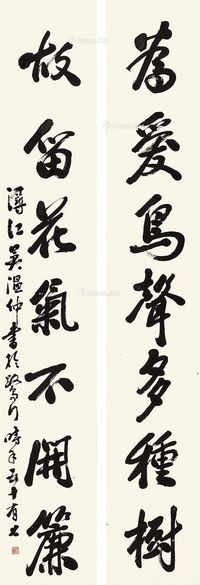 舊愛鳥聲多種樹
故留花氣不開簾
潯江吳溫仲書於鷺門時年五十有七